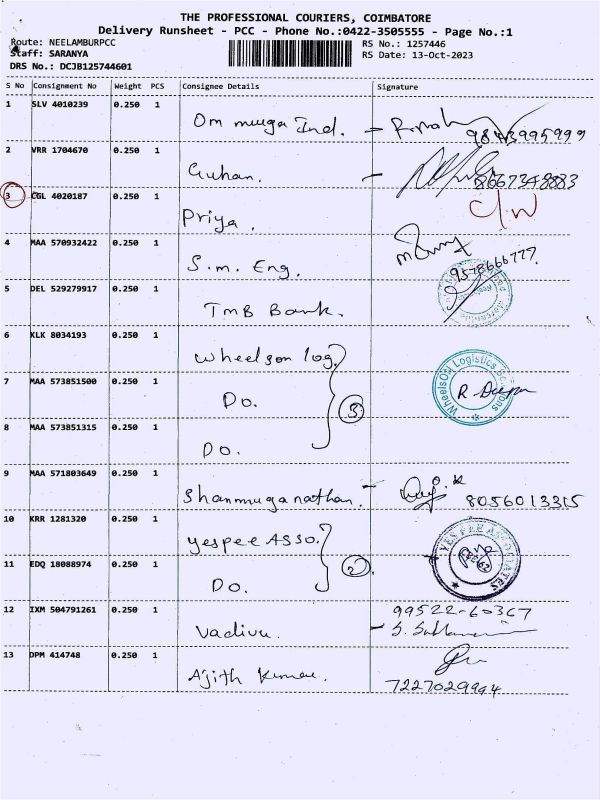 THE PROFESSIONAL COURIERS, COIMBATORE
Delivery Runsheet - PCC - Phone No.:0422-3505555 - Page No.:1
Route: NEELAMBURPCC
Staff: SARANYA
DRS No.: DCJB125744601
RS No.: 1257446
RS Date: 13-Oct-2023
S No Consignment No Weight PCS Consignee Details Signature
1 SLV 4010239 0.250 1 Om muuga Ind. - 9843995999
2 VRR 1704670 0.250 1 Guhan. - 8667348883
3 CGL 4020187 0.250 1 Priya. C/W
4 MAA 570932422 0.250 1 S.m. Eng. 9578666777.
5 DEL 529279917 0.250 1 TMB Bank.
6 KLK 8034193 0.250 1 Wheelson log.
7 MAA 573851500 0.250 1 Do. 3 WheelsON Logistics Solutions R Deepa
8 MAA 573851315 0.250 1 Do.
9 MAA 571803649 0.250 1 Shanmuganathan. - 8056013315
10 KRR 1281320 0.250 1 yespee ASSO. YES PEE ASSOCIATES
11 EDQ 18088974 0.250 1 Do. 2
12 IXM 504791261 0.250 1 Vadivu. 99522-60367
13 DPM 414748 0.250 1 Ajith Kumar. 7227029994